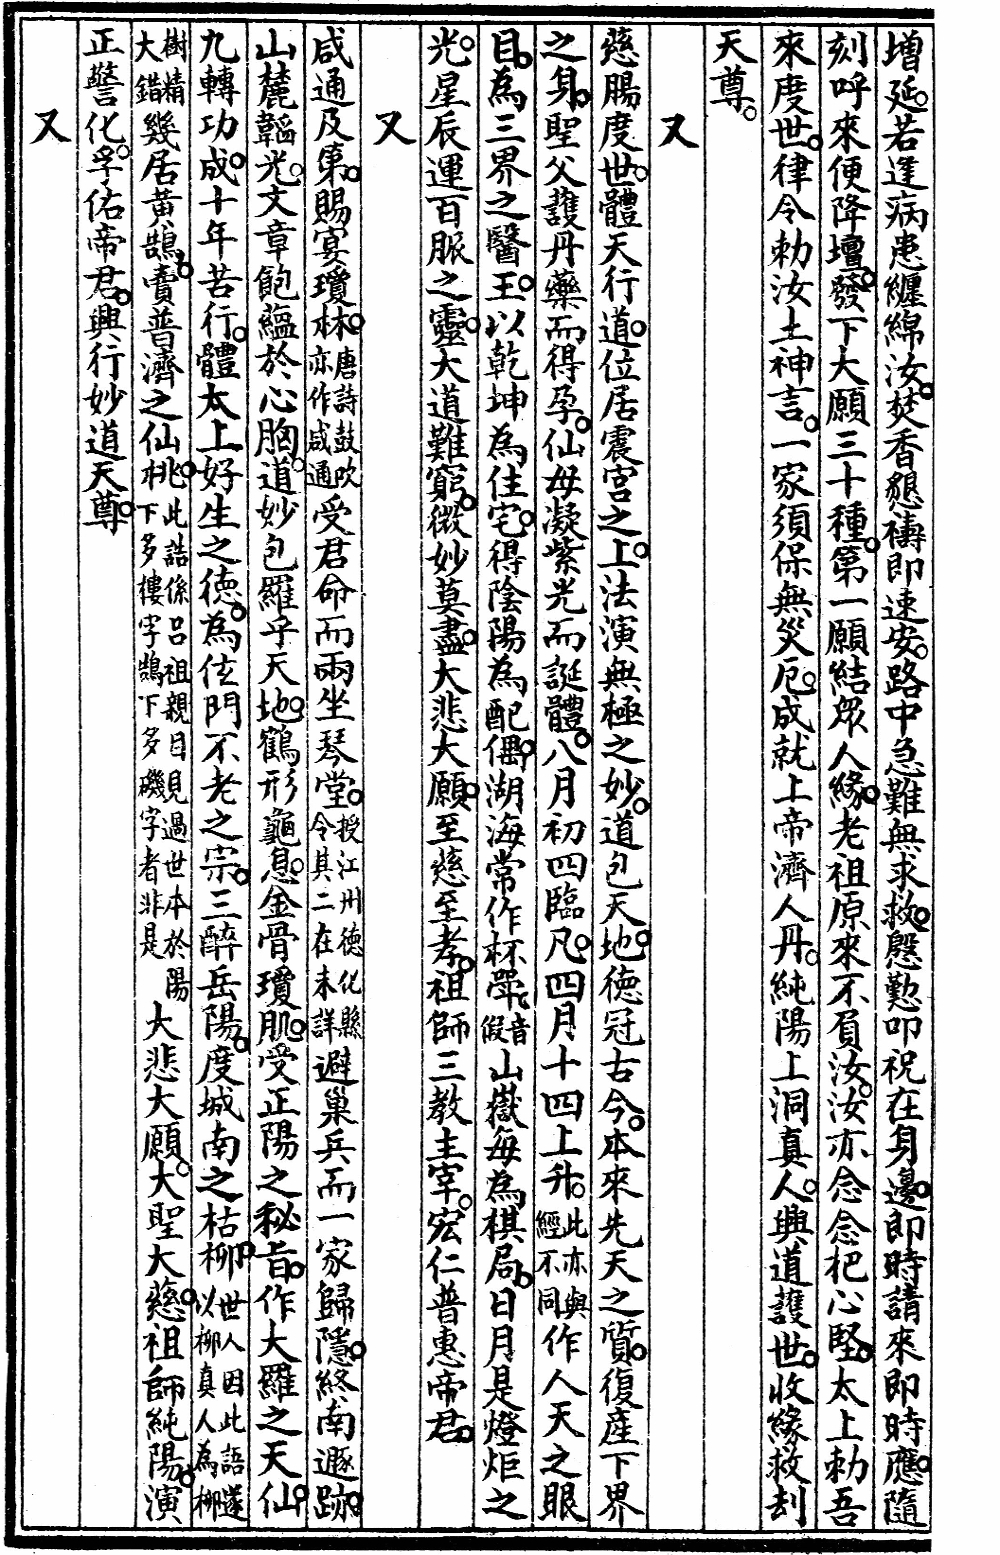 增延。若逢病患纏綿汝。焚香懇禱即速安。路中急難無求救。慇勤叩祝在身邊。即時請來即時應。隨
刻呼來便降壇。發下大願三十種。第一願結眾人緣。老祖原來不負汝。汝亦念念把心堅。太上勅吾
來度世。律令勅汝土神言。一家須保無災厄。成就上帝濟人丹。純陽上洞真人。興道護世。收緣救刦
天尊。
又
慈腸度世。體天行道。位居震宮之上。法演無極之妙。道包天地。德冠古今。本來先天之質。復産下界
之身。聖父護丹藥而得孕。仙母凝紫光而誕體。八月初四臨凡。四月十四上升。此亦與經不同作人天之眼
目。為三界之醫王。以乾坤為住宅。得陰陽為配偶。湖海常作杯斝。音假山嶽每為棋局。日月是燈炬之
光。星辰運百脈之靈。大道難窮。微妙莫盡。大悲大願。至慈至孝。祖師三教主宰。宏仁普惠帝君。
又
咸通及第。賜宴瓊林。唐詩鼓吹亦作咸通受君命而兩坐琴堂。授江州德化縣令其二在未詳避巢兵而一家歸隱。終南遯跡。
山麓韜光。文章飽蘊於心胸。道妙包羅乎天地。鶴形龜息。金骨瓊肌。受正陽之秘旨。作大羅之天仙。
九轉功成。十年苦行。體太上好生之德。為佐門不老之宗。三醉岳陽。度城南之枯柳。世人因此語遂以柳真人為柳
樹精大錯幾居黃鵠。賣普濟之仙桃。此誥係呂祖親目見過世本於陽下多樓字鵠下多磯字者非是大悲大願。大聖大慈。祖師純陽。演
正警化。孚佑帝君。興行妙道天尊。
又